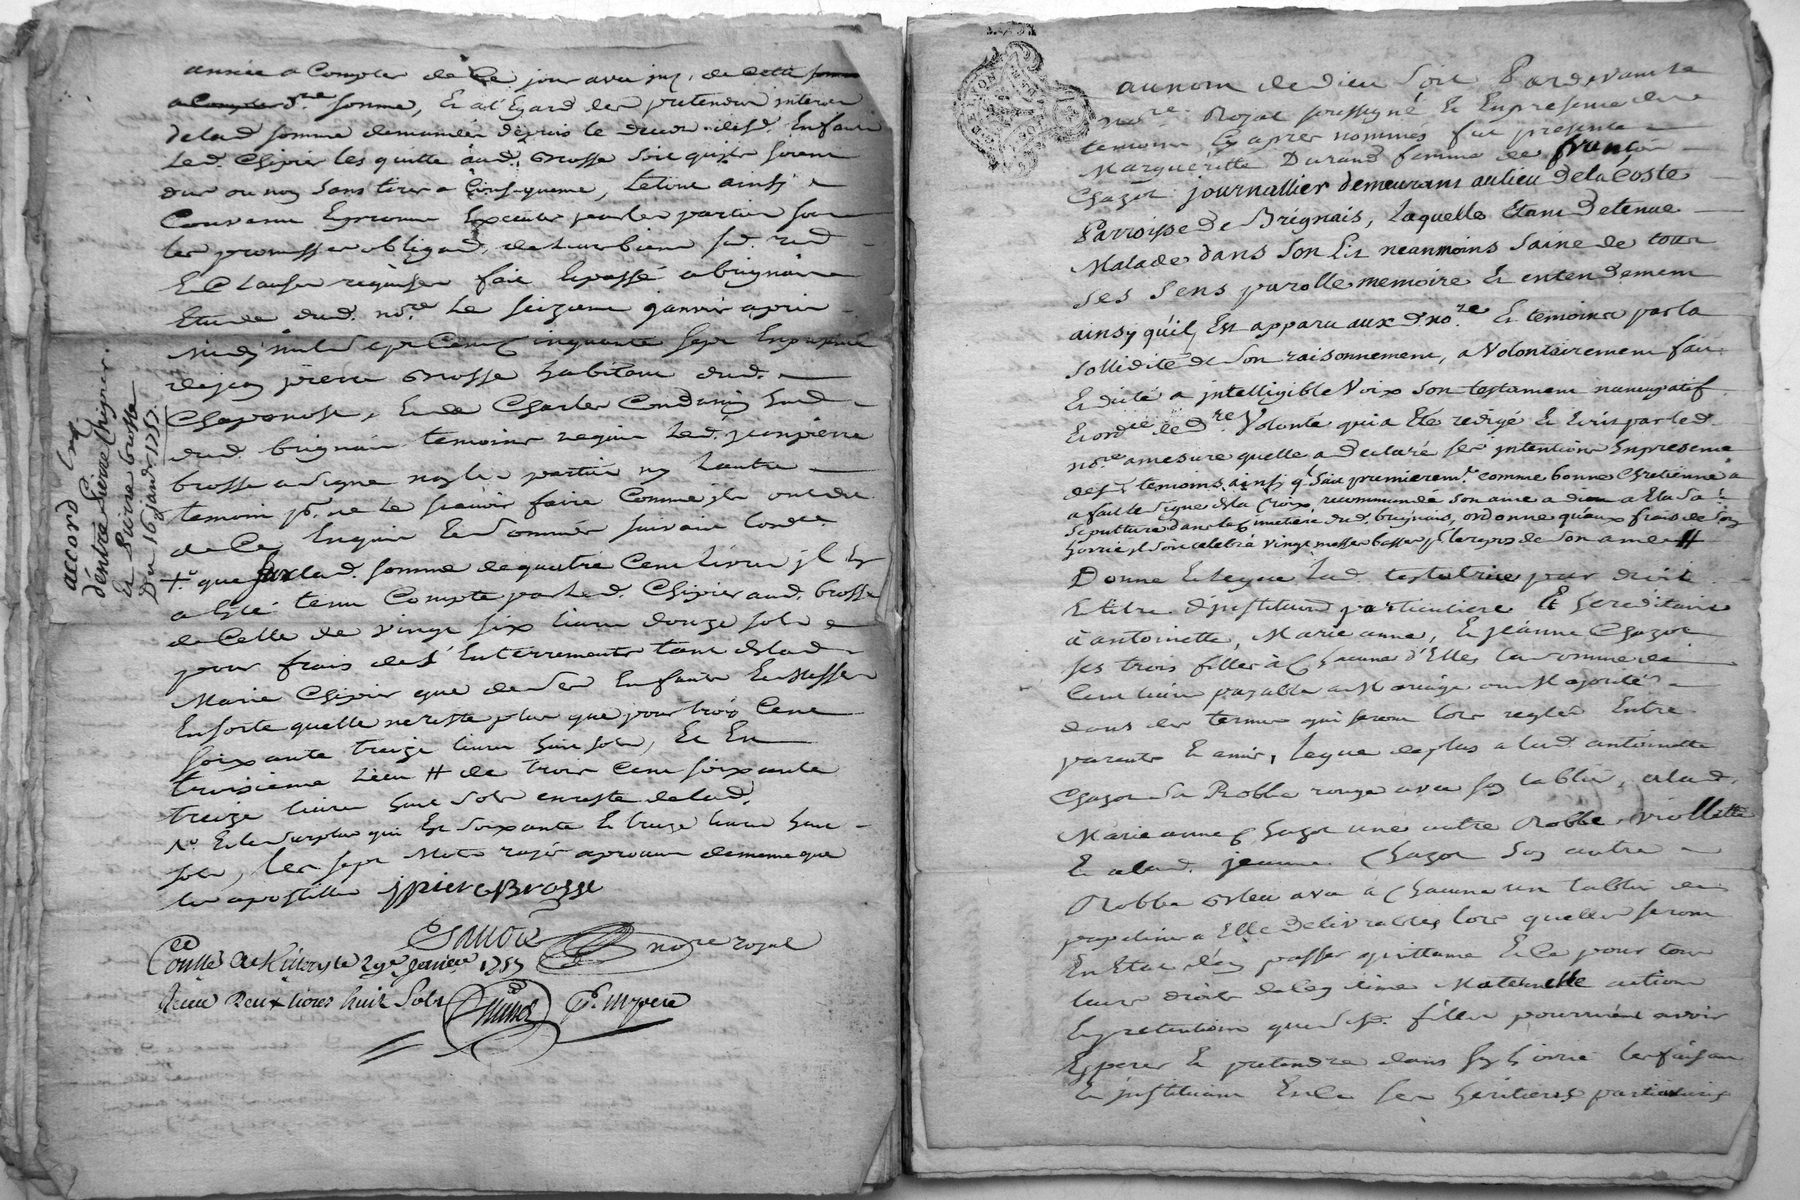 année a Compter de Ce jour avec jnt. de cette somme
a Compter dre somme, Et a l'Egard des pretendus interets
de lad. somme demandée depuis le deces desd. Enfants
Led. Chipier les quitte aud. Brosse soit quils soient
dus ou non sans tirer a Consequence, le tout ainsy
Convenu Epromis Executer par les parties sous
les promesses obligaons. de leurs biens sd. red.
Et Clauses requises fait Epassé a brignais
Etude dud. nore. Le seizieme janvier apres
Midy mil sept Cent Cinquante sept En presence
de jean pierre Brosse habitant dud.
Chaponost, Et de Charles Condamin hab.
dud. brignais temoins requis Led. jean pierre
brosse a signe non les parties ny Lautre
temoin pt. ne le scavoir faire Comme ils ont dit
de Ce Enquis Et Sommés suivant londce.
+. que sur lad. somme de quatre Cent livres jl Est
a Esté tenu Compte par Led. Chipier aud. brosse
de Celle de vingt six livres douze sols
pour frais de l'Enterrements tant de lad.
Marie Chipier que de ses Enfants Et Messes
Ensorte quelle ne reste plus que pour trois Cent
soixante treize livres huit sols, Et En
troisieme lieu # de trois Cent soixante
treize livres huit sols en reste de lad.
N. Et le surplus qui Est soixante Et treize livres huit
sols, les sept Mots rayés aprouvés de meme que
les apostilles jpierre Brosse
nore royal
Conllé Au Killery le 29e janvier 1757
Recu Deux livres huit Sols
accord
d'entre Pierre Chipier
Et Pierre brosse
Du 16 janvr 1757.
au nom de dieu soit Pardevant Le
nore. Royal soussigné Et En presence des
temoins Cy apres nommés fut presente
Marguéritte Durand femme de françois
Chazot journallier demeurant au lieu de la Coste
Parroisse de Brignais, laquelle Etant Detenue
Malade dans Son Lit neanmoins Saine de tous
Ses Sens parolle memoire Et entendement
ainsy qu'il Est apparu aux d. nore. Et temoins par la
sollidité de Son raisonnement, a Volontairement fait
Et dicté a intelligible Voix Son testament nuncupatif
Et ordce de dre Volonté qui a Eté redigé Et Ecrit par led.
nore. a mesure quelle a declaré ses intentions En presence
desd. temoins, ainsy q. suit premierement. comme bonne Chretienne a
a fait le Signe de la Croix, recommandé Son ame a dieu a Elu sa
sepulture dans le Cimetiere dud. brignais, ordonne qu'aux frais de son
hoirie jl soit celebré vingt messes basses pr. le repos de son ame #
Donne Et legue lad. testatrice par droit
Et titre d'jnstitution particuliere Et hereditaire
à antoinette, Marie anne, Et jeanne Chazot
ses trois filles à Chacune d'Elles la somme de
Cent livres payable a Mariage ou Majorité
dans des termes qui seront lors reglés Entre
parents Et amis, legue de plus a lad. antoinette
Chazot Sa Robbe rouge avec son tablier, a lad.
Marie anne Chazot une autre Robbe viollette
Et a lad. jeanne Chazot Son autre
Robbe bleu avec à Chacune un tablier de
popeline a Elle Delivrables lors quelles seront
En Etat d'en passer quittance Et Ce pour tous
leurs droits de legitime Maternelle action
Et pretentions que sesd. filles pourroient avoir
Esperer Et pretendre dans son hoirie les faisant
Et jnstituant En Ce ses heritieres particulieres